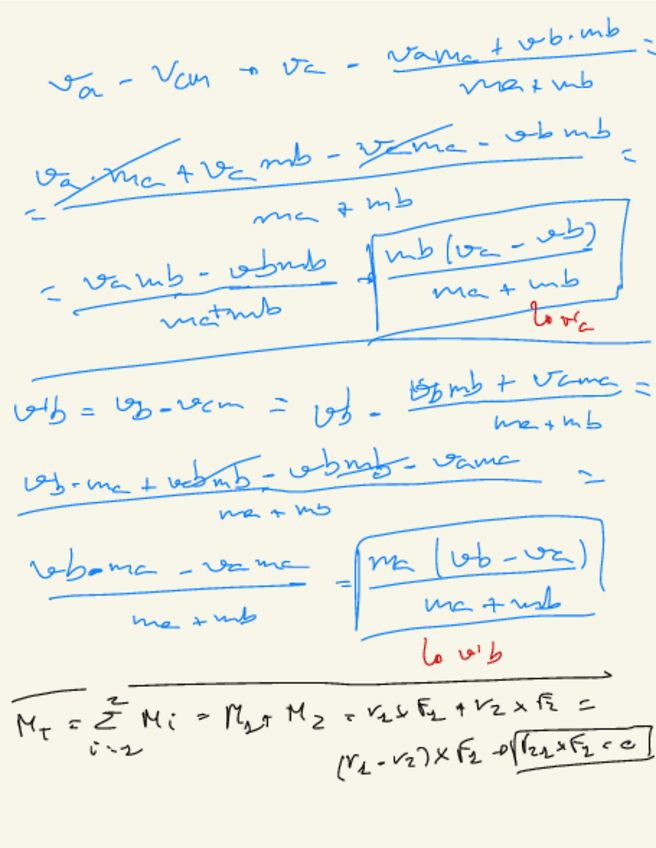 va - vcm → va - (vama + vb·mb)/(ma + mb) =
= (va·ma + va mb - vama - vb mb)/(ma + mb) =
= (vamb - vbmb)/(ma+mb) → mb (va - vb)/(ma + mb)
↳ v'a
v'b = vb - vcm = vb - (vbmb + vama)/(ma + mb) =
(vb·ma + vbmb - vbmb - vama)/(ma + mb) =
(vb·ma - vama)/(ma + mb) = ma (vb - va)/(ma + mb)
↳ v'b
M_T = Σ_{i=1}^{2} Mi = M1 + M2 = r1 x F1 + r2 x F2 =
(r1 - r2) x F1 → r21 x F1 = 0